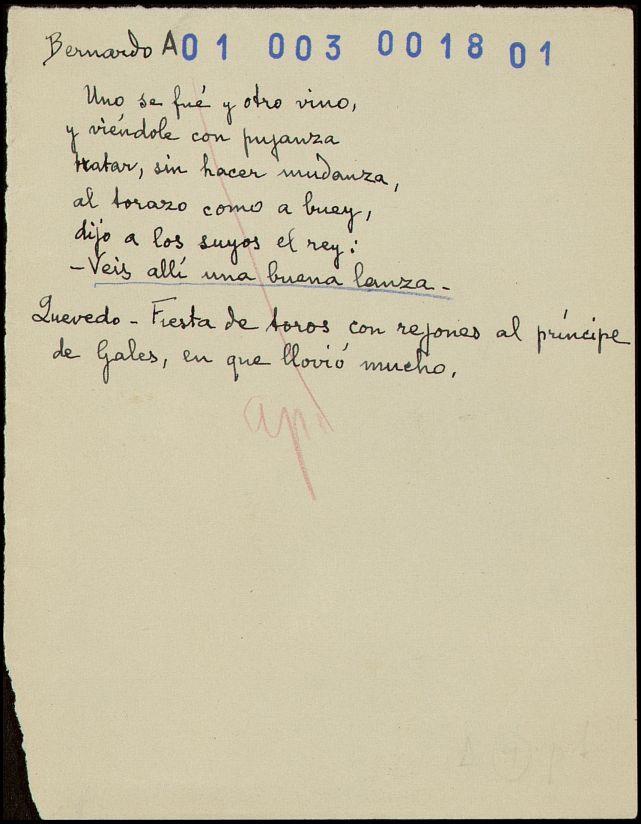 Bernardo A01 003 0018 01
Uno se fué y otro vino,
y viéndole con pujanza
tratar, sin hacer mudanza,
al torazo como a buey,
dijo a los suyos el rey:
-Veis allí una buena lanza-
Quevedo - Fiesta de toros con rejones al príncipe
de Gales, en que llovió mucho.